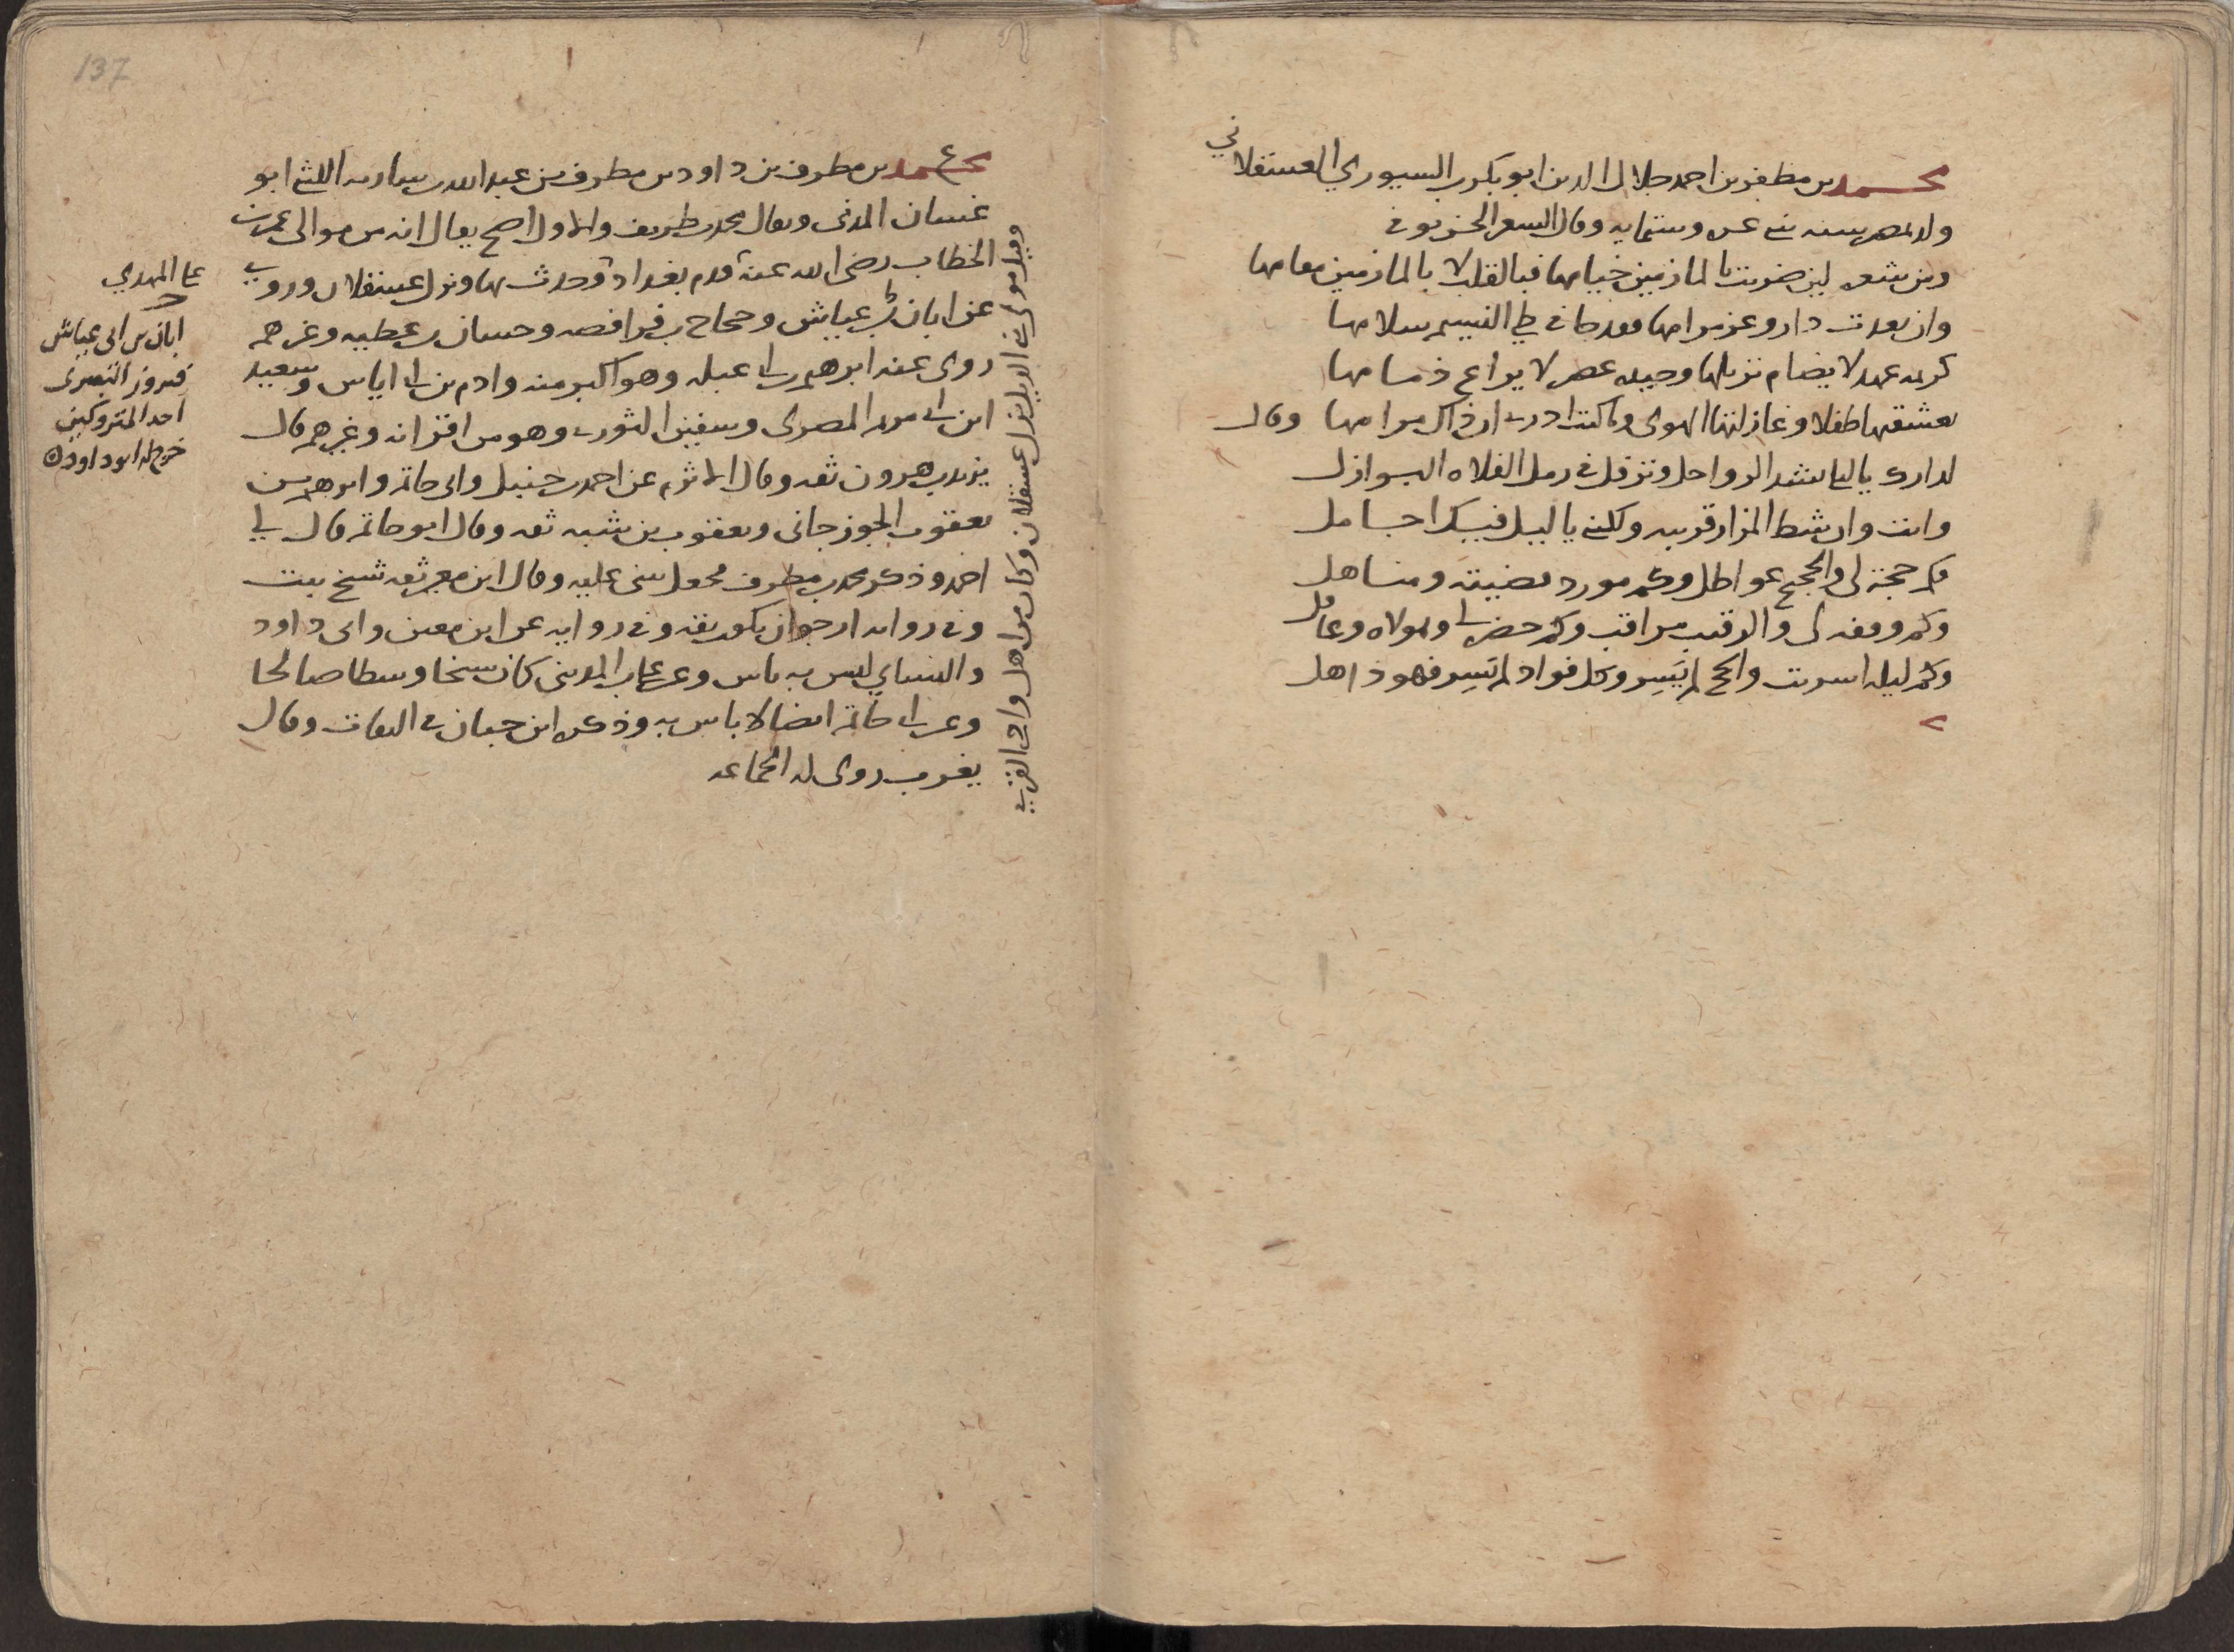 محمد بن مظفر بن احمد جلال الدين ابو بكر بن السيوري العسقلاني
ولد بمصر سنه ثنى عسر وستمايه وقال السعر الحسن توفى
ومن شعره لين ضربت بالمازمين خيامها فبالقلب لا بالمازمين مقامها
وان بعدت دار وعز مرامها فقد جا فى طى النسيم سلامها
كريمه عهد لا يضام نزيلها وجيبه عصر لا يراع ذمامها
تعشقتها طفلا وغازلنها الهوى وما كنت ادرى ان ذاك مرامها وقال
لدارك يا ليلى تشد الرواحل وتزفل فى رمل الفلاه البوازل
وانت وان شط المزار قريبه وكلنى يا ليل فيك احامل
كم حجة لى والحجيج عواطل وكم مورد لضيته ومناهل
وكم وقفه لى والرقيب مراقب وكم حضر لى ومولاه وغافل
وكم ليله اسريت والحج لم يسر وكل فواد لم يسر فهو ذاهل
137
محمد بن مطرف بن داود بن مطرف بن عبد الله بن ساريه الليثى ابو
غسان المدنى ويقال محمد بن طريف والاول اصح يقال انه من موالى عمر بن
الخطاب رضى الله عنه قدم بغداد وحدث بها ونزل عسقلان وروى
عن ابان بن ابى عياش وحجاج بن فرافصه وحسان بن عطيه وغيرهم
روى عنه ابرهيم بن ابى عبله وهو اكبر منه وادم بن ابى اياس وسعيد
ابن ابى مريم المصرى وسفين الثورى وهو من اقرانه وغيرهم قال
يزيد بن هرون ثقه وقال الاثرم عن احمد بن حنبل وابى حاتم وابرهيم بن
يعقوب الجوزجانى ويعقوب بن شيبه ثقه وقال ابو حاتم قال لى
احمد وذكر محمد بن مطرف فجعل يثنى عليه وقال ابن معين ثقه شيخ ثبت
وفى روايه ارجو ان يكون ثقه وفى روايه عن ابن معين وابى داود
والنساي ليس به باس وعن على بن المدينى كان شيخا وسطا صالحا
وعن ابى حاتم ايضا لا باس به وذكره ابن حبان فى الثقات وقال
يغرب روى له الجماعه
وقيل مولى بنى الديل نزل عسقلان وكان من اهل وادى القرى
على المهدي
ابان بن ابى عياش
فيروز البصرى
احد المتروكين
خرج له ابو داود